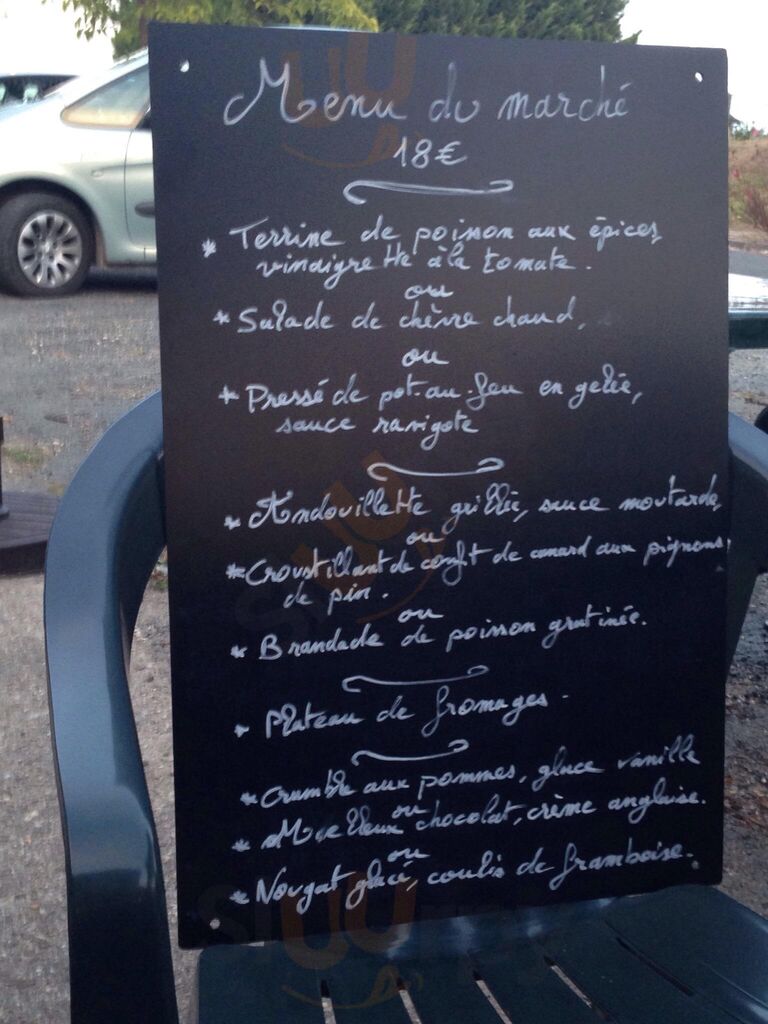 Menu du marché
18€
* Terrine de poisson aux épices,
vinaigrette à la tomate.
ou
* Salade de chèvre chaud,
ou
* Pressé de pot-au-feu en gelée,
sauce ravigote
* Andouillette grillée, sauce moutarde
ou
* Croustillant de confit de canard aux pignons
de pin.
ou
* Brandade de poisson gratinée.
* Plateau de fromages.
* Crumble aux pommes, glace vanille
ou
* Moelleux chocolat, crème anglaise.
ou
* Nougat glacé, coulis de framboise.